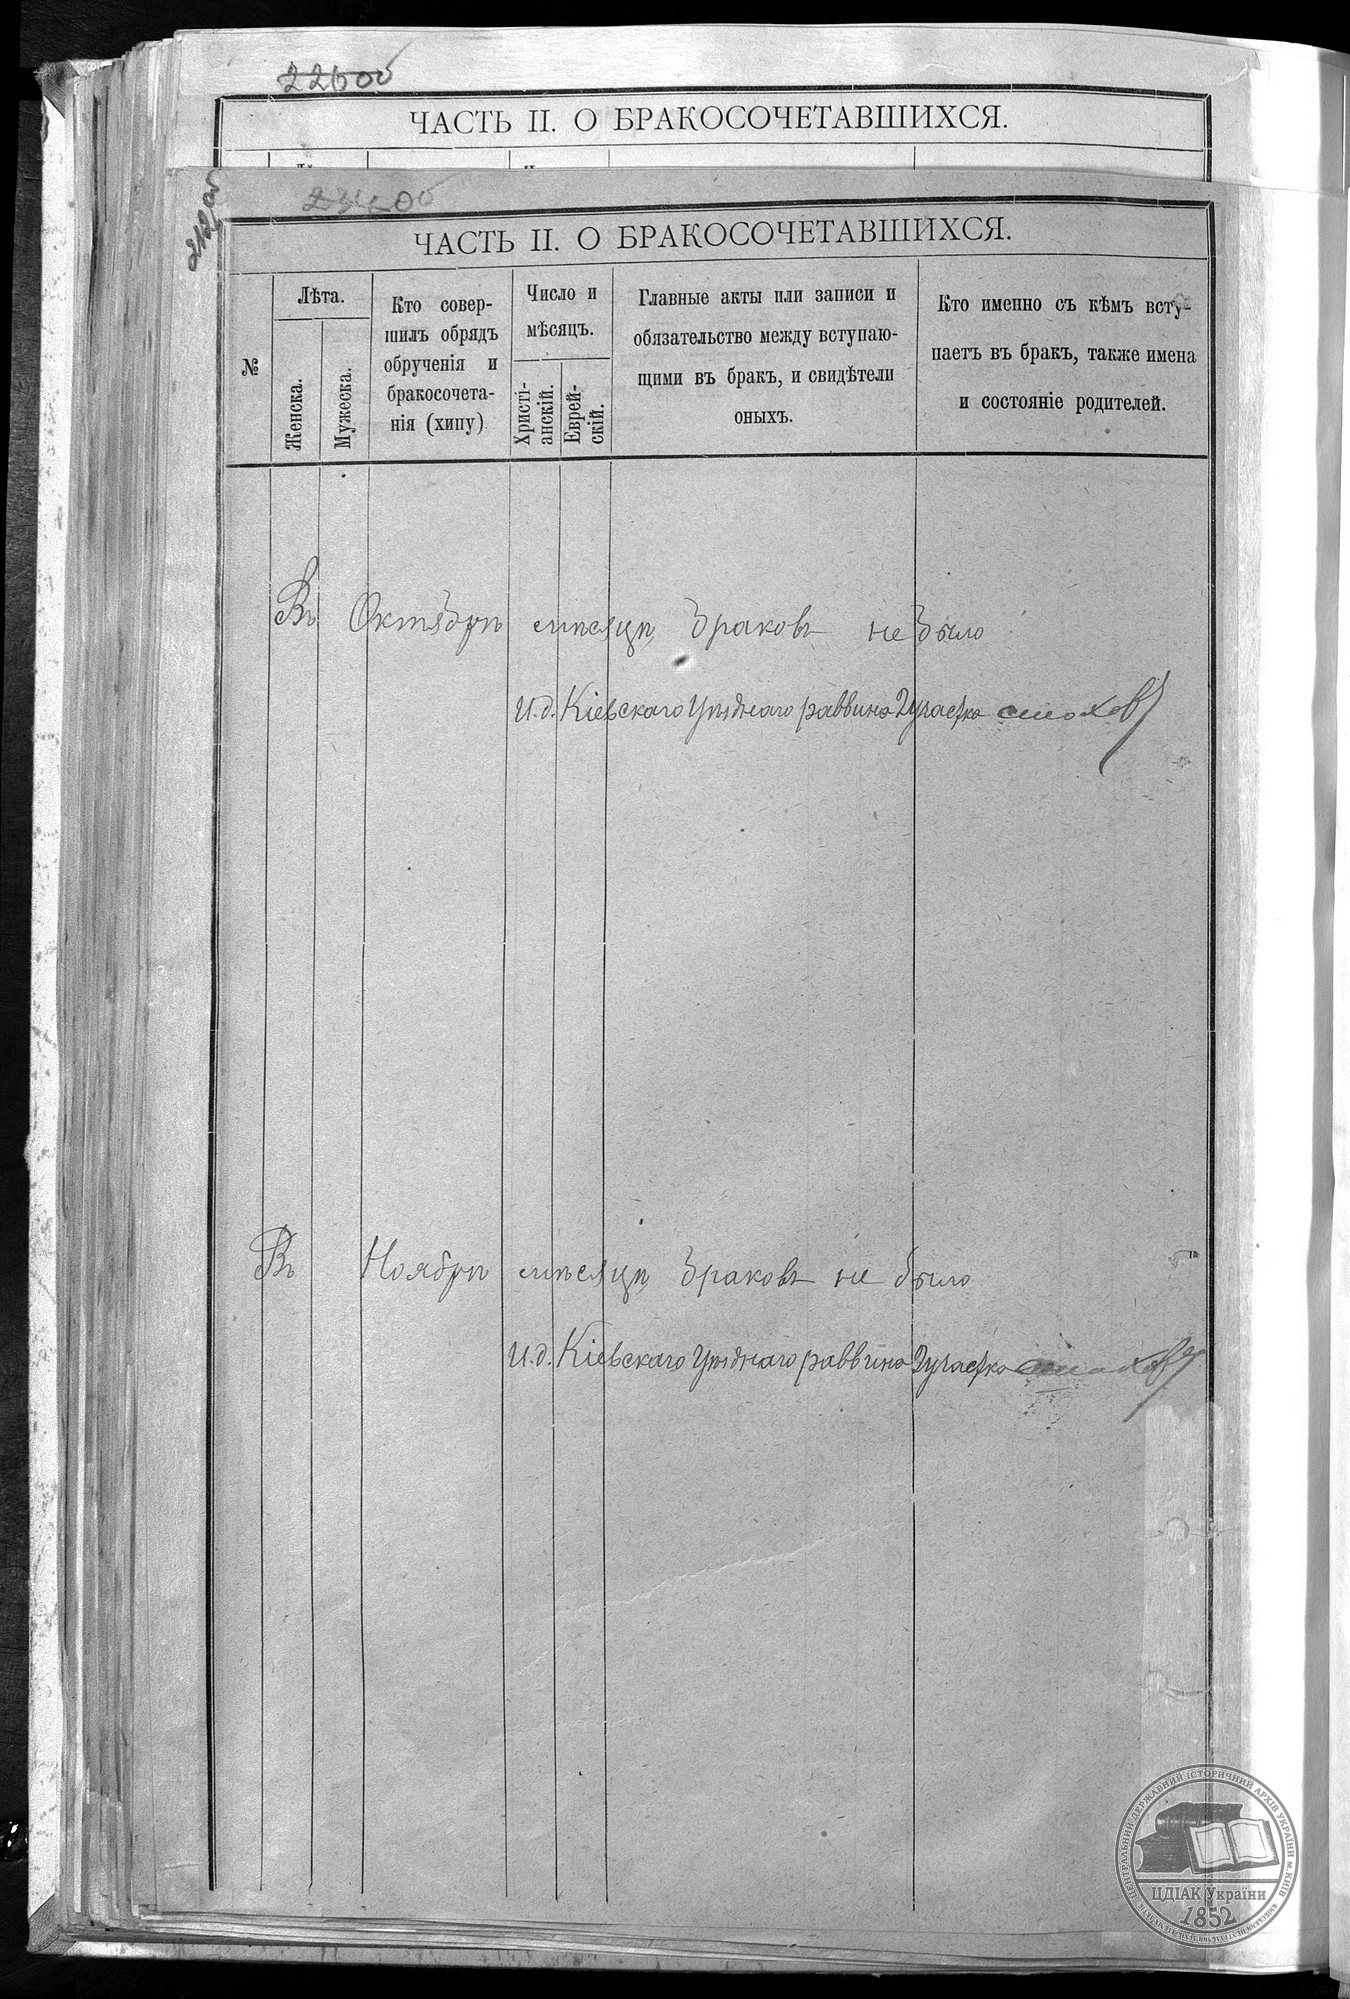 ЧАСТЬ II. О БРАКОСОЧЕТАВШИХСЯ.
ЧАСТЬ II. О БРАКОСОЧЕТАВШИХСЯ.
№
Лѣта.
Женска.
Мужеска.
Кто совер-
шилъ обрядъ
обрученія и
бракосочета-
нія (хипу)
Число и
мѣсяцъ.
Христі-
анскій.
Еврей-
скій.
Главные акты или записи и
обязательство между вступаю-
щими въ бракъ, и свидѣтели
оныхъ.
Кто именно съ кѣмъ всту-
паетъ въ бракъ, также имена
и состояніе родителей.
Въ Октябрѣ мѣсяцѣ браковъ не было
И.д. Кіевскаго Уѣзднаго раввина 2 участка
Въ Ноябрѣ мѣсяцѣ браковъ не было
И.д. Кіевскаго Уѣзднаго раввина 2 участка
ЦЕНТРАЛЬНИЙ ДЕРЖАВНИЙ ІСТОРИЧНИЙ АРХІВ УКРАЇНИ м. КИЇВ
ЦДІАК України
1852